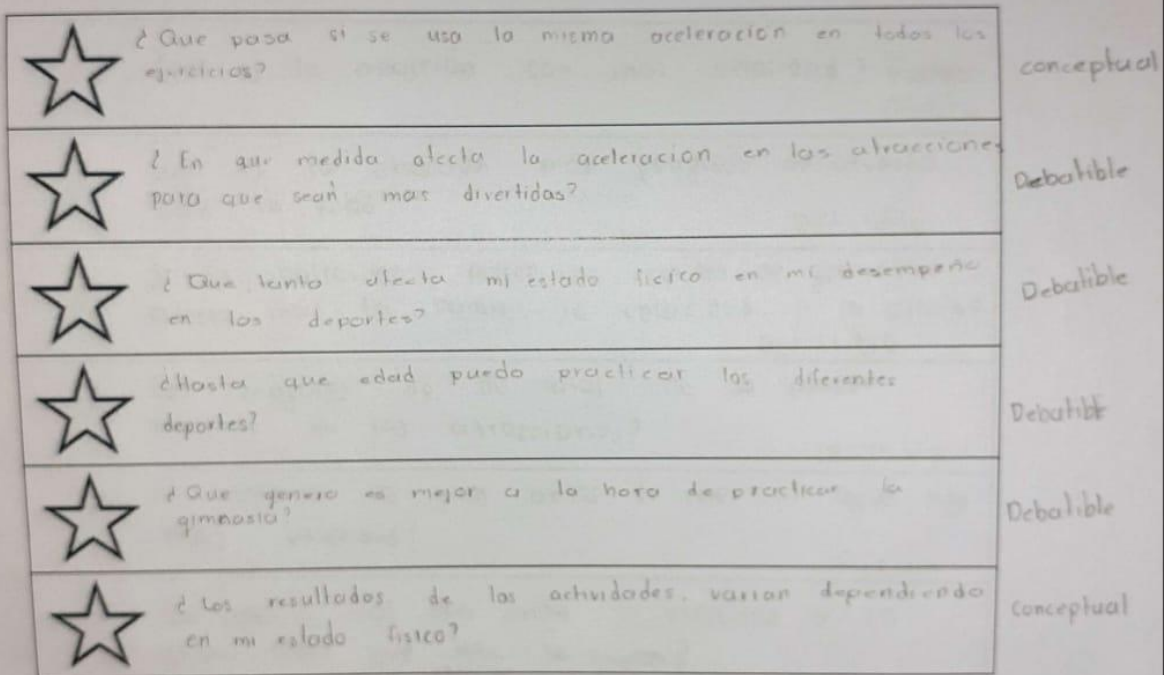 ¿Que pasa si se usa la misma aceleracion en todos los
ejercicios?
conceptual
¿En que medida afecta la aceleracion en las atracciones
para que sean mas divertidas?
Debatible
¿Que tanto afecta mi estado ficico en mi desempeño
en los deportes?
Debatible
¿Hasta que edad puedo practicar los diferentes
deportes?
Debatible
¿Que genero es mejor a la hora de practicar la
gimnasia?
Debatible
¿Los resultados de las actividades, varian dependiendo
en mi estado fisico?
conceptual